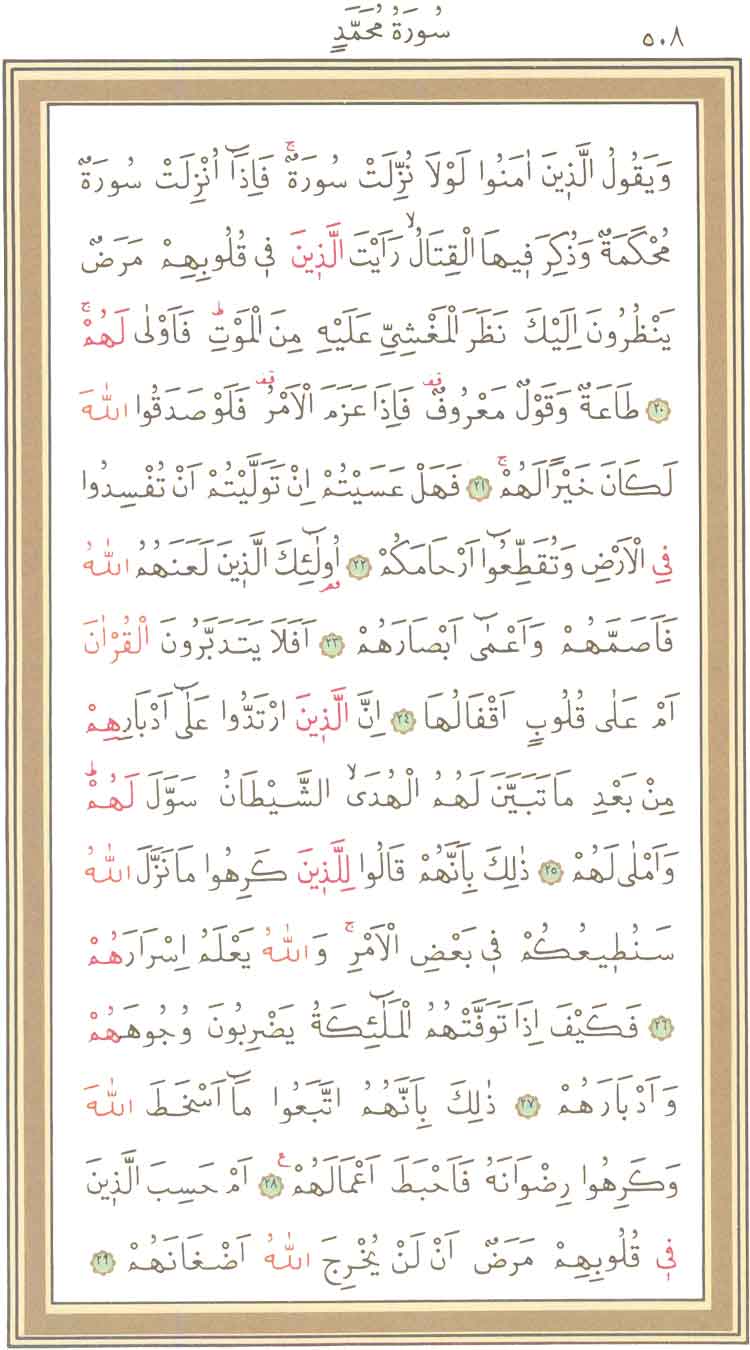 ٥٠٨ سُورَةُ مُحَمَّدٍ
وَيَقُولُ الَّذ۪ينَ اٰمَنُوا لَوْلَا نُزِّلَتْ سُورَةٌۚ فَاِذَٓا اُنْزِلَتْ سُورَةٌ
مُحْكَمَةٌ وَذُكِرَ ف۪يهَا الْقِتَالُۙ رَاَيْتَ الَّذ۪ينَ ف۪ي قُلُوبِهِمْ مَرَضٌ
يَنْظُرُونَ اِلَيْكَ نَظَرَ الْمَغْشِيِّ عَلَيْهِ مِنَ الْمَوْتِۜ فَاَوْلٰى لَهُمْۚ
﴿٢٠﴾ طَاعَةٌ وَقَوْلٌ مَعْرُوفٌ۠ فَاِذَا عَزَمَ الْاَمْرُ۠ فَلَوْ صَدَقُوا اللّٰهَ
لَكَانَ خَيْرًا لَهُمْۚ ﴿٢١﴾ فَهَلْ عَسَيْتُمْ اِنْ تَوَلَّيْتُمْ اَنْ تُفْسِدُوا
فِي الْاَرْضِ وَتُقَطِّعُٓوا اَرْحَامَكُمْ ﴿٢٢﴾ اُو۬لٰٓئِكَ الَّذ۪ينَ لَعَنَهُمُ اللّٰهُ
فَاَصَمَّهُمْ وَاَعْمٰٓى اَبْصَارَهُمْ ﴿٢٣﴾ اَفَلَا يَتَدَبَّرُونَ الْقُرْاٰنَ
اَمْ عَلٰى قُلُوبٍ اَقْفَالُهَا ﴿٢٤﴾ اِنَّ الَّذ۪ينَ ارْتَدُّوا عَلٰٓى اَدْبَارِهِمْ
مِنْ بَعْدِ مَا تَبَيَّنَ لَهُمُ الْهُدَىۙ الشَّيْطَانُ سَوَّلَ لَهُمْۜ
وَاَمْلٰى لَهُمْ ﴿٢٥﴾ ذٰلِكَ بِاَنَّهُمْ قَالُوا لِلَّذ۪ينَ كَرِهُوا مَا نَزَّلَ اللّٰهُ
سَنُط۪يعُكُمْ ف۪ي بَعْضِ الْاَمْرِۚ وَاللّٰهُ يَعْلَمُ اِسْرَارَهُمْ
﴿٢٦﴾ فَكَيْفَ اِذَا تَوَفَّتْهُمُ الْمَلٰٓئِكَةُ يَضْرِبُونَ وُجُوهَهُمْ
وَاَدْبَارَهُمْ ﴿٢٧﴾ ذٰلِكَ بِاَنَّهُمُ اتَّبَعُوا مَٓا اَسْخَطَ اللّٰهَ
وَكَرِهُوا رِضْوَانَهُ فَاَحْبَطَ اَعْمَالَهُمْ ع ﴿٢٨﴾ اَمْ حَسِبَ الَّذ۪ينَ
ف۪ي قُلُوبِهِمْ مَرَضٌ اَنْ لَنْ يُخْرِجَ اللّٰهُ اَضْغَانَهُمْ ﴿٢٩﴾